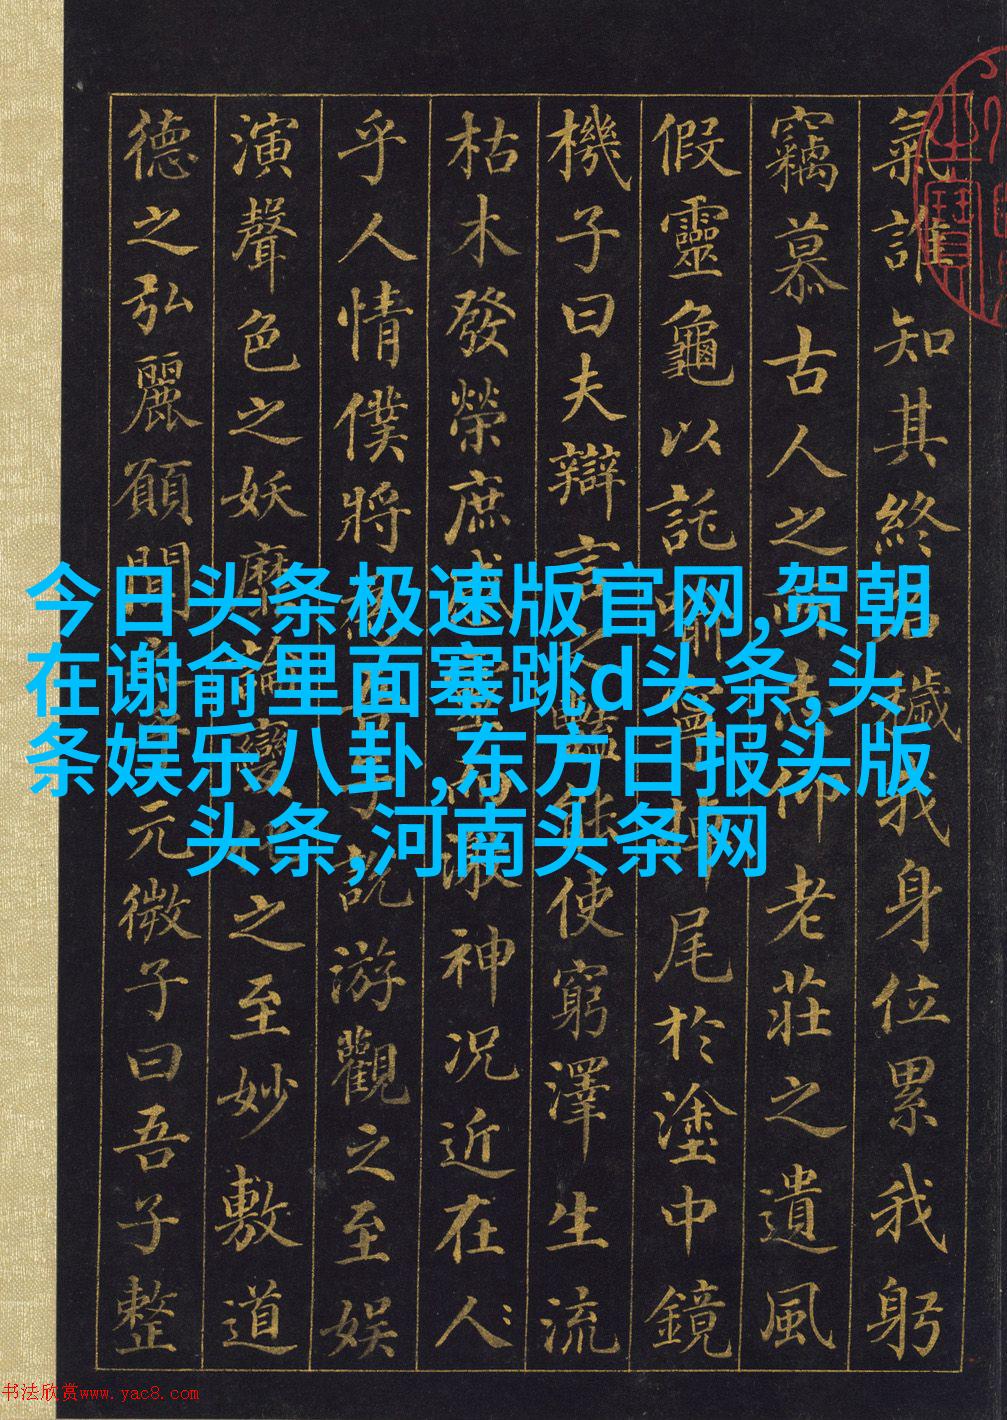 氣誰知其終名穢我身位累我躬
竊慕古人之所志仰老莊之遺風
假靈龜以託喻寧掉尾於塗中鏡
機子曰夫辯言之豔能使窮澤生流
枯木發榮庶感靈而激神況近在人
乎人情僕將為吾子說游觀之至娛
演聲色之妖靡論變化之至妙敷道
德之弘麗願聞之乎元微子曰吾子整
今日头条极速版官网,贺朝
在谢俞里面塞跳d头条,头
条娱乐八卦,东方日报头版
头条,河南头条网
书法欣赏www.yac8.com